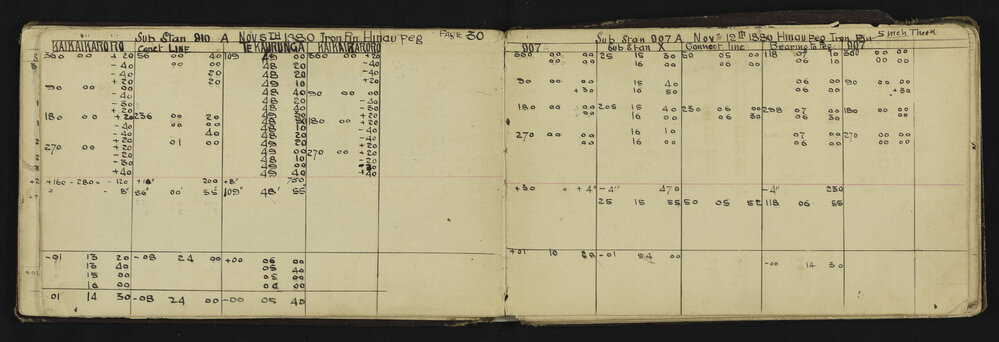 Sub Stan 910 A Nov 8TH 1880 Iron Pin Hinau Peg PAGE 30
KAIKAIKARORO Conct LINE TE KAURUNGA KAIKAIKARORO
360 00 +20 56 00 40 109 49 00 360 00 +40
-40 00 00 48 20 -40
-40 20 48 40 -20
+20 20 49 10 +20
90 00 00 48 40 90 00 00
-40 48 20 -40
-30 48 40 -30
+20 49 20 +20
180 00 +20 236 00 20 48 50 180 00 +20
-40 00 00 48 10 -40
40 48 20 -40
+20 01 00 49 20 +20
270 00 +20 49 00 270 00 +20
-20 48 10 -20
+40 49 40 +40
+160 -280 = -120 +18" 200 +8" 750
56° 00' 55" 109° 48' 55"
-01 13 20 -08 24 00 +00 06 00
13 40 05 40
15 00 05 00
16 00 06 00
01 14 30 -08 24 00 -00 05 40
Sub Stan 007 A Nov 12th 1880 Hinau Peg Iron Pin 5 inch Theod
007 Sub Stan X Connect line Bearing to Peg 007
360 00 00 25 15 30 50 05 00 118 07 10 360 00 00
00 16 00 06 00 06 10 00 00
90 00 00 15 40 06 00 90 00 00
+30 16 50 06 00 +30
180 00 00 205 15 40 230 06 00 298 07 00 180 00 00
00 16 00 06 30 06 30 00 00
270 00 00 16 10 07 00 270 00 00
00 16 00 06 00 00 00
+30 = +4" -4" 470 -4" 230
25 15 55 50 05 52 118 06 55
+01 10 -01 54 00
-00 14 30